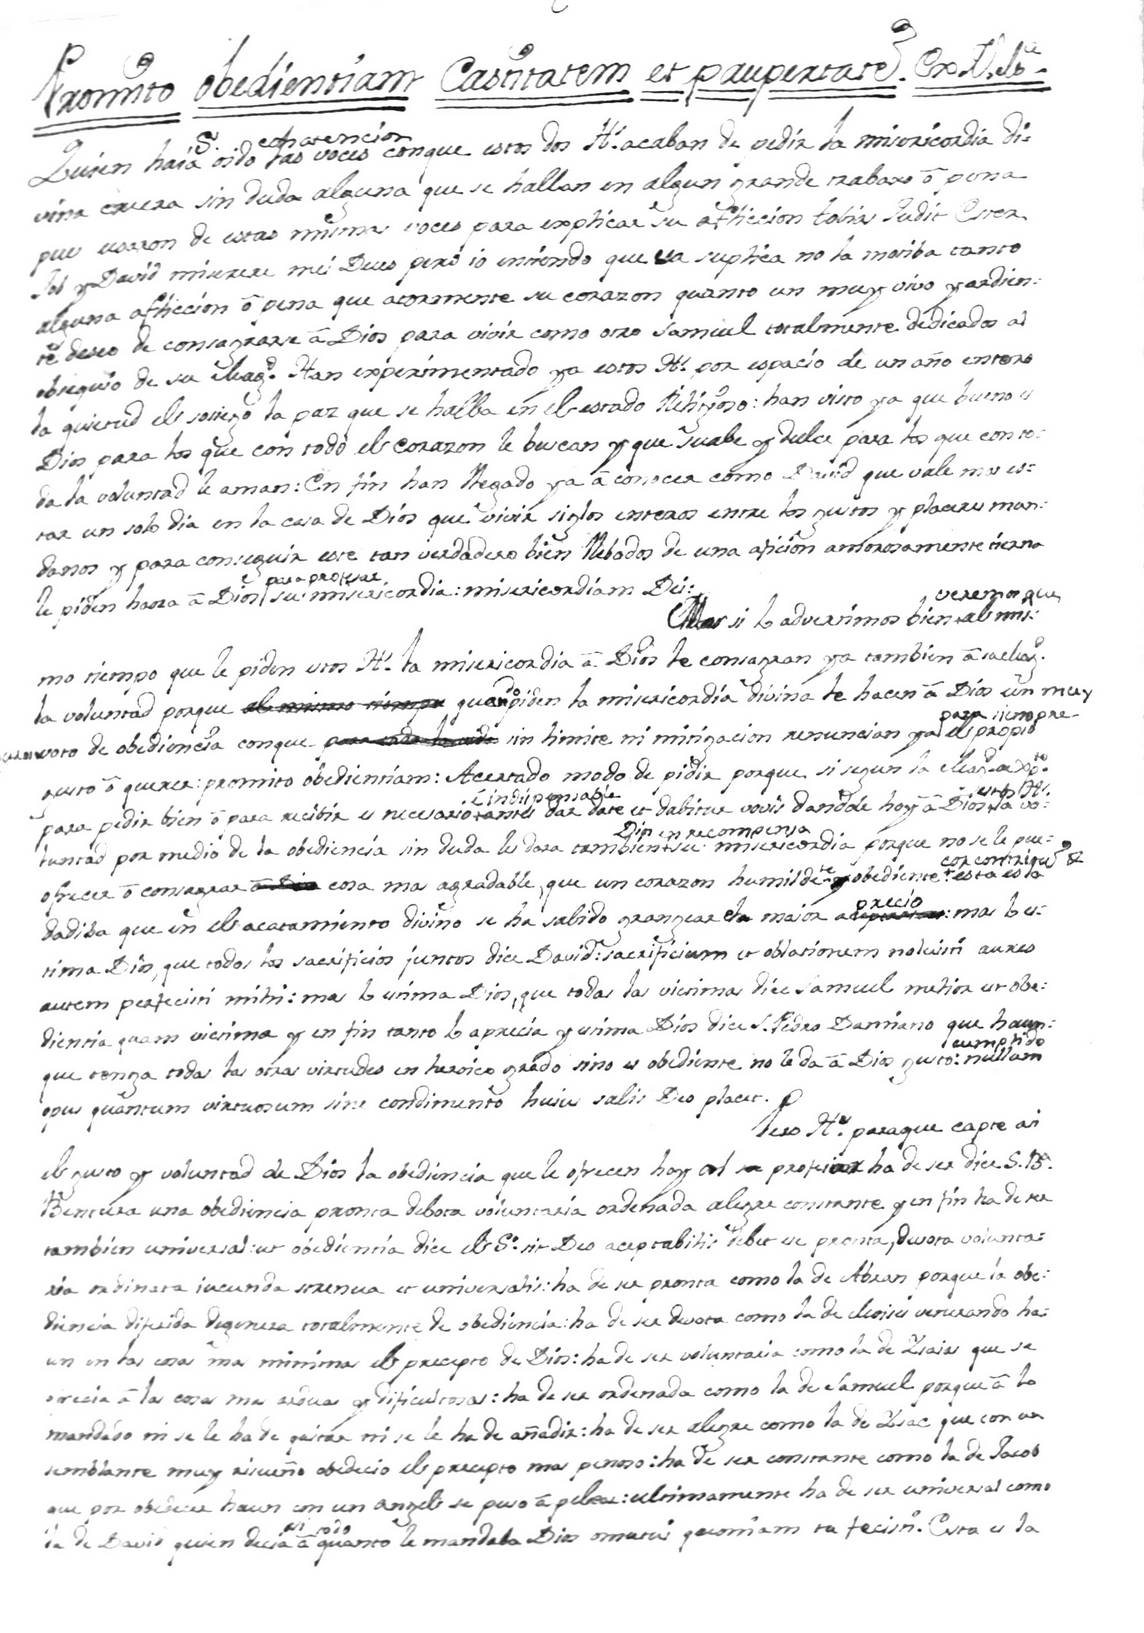 Promito obedientiam Castitatem et paupertatē. Ex N. Sb.e
Quien haia S. oido con atencion las voces conque estos dos H.s acaban de pedir la misericordia di-
vina creera sin duda alguna que se hallan en algun grande trabaxo ō pena
pues usaron de estas mismas voces para explicar su aflicion tobias Judit Ester
Job y David miserere mei Deus pero io entiendo que su suplica no la motiba tanto
alguna aflicion ō pena que atormente su corazon quanto un muy vivo y ardien-
te deseo de consagrarse ā Dios para vivir como otro Samuel totalmente dedicados al
obsequio de su Mag.d Han experimentado ya estos H.s por espacio de un año entero
la quietud el sosiego la paz que se halla en el estado Religioso: han visto ya que bueno es
Dios para los que con todo el corazon le buscan y que suabe y dulce para los que con to-
da la voluntad le aman: En fin han llegado ya ā conocer como David que vale mas es-
tar un solo dia en la casa de Dios que vivir siglos enteros entre los gustos y placeres mun-
danos y para conseguir este tan verdadero bien llebados de una aficion amorosamente tierna
le piden haora ā Dios para profesar su misericordia: misericordiam Dei:
Mas si lo advertimos bien veremos que al mis-
mo tiempo que le piden estos H.s la misericordia ā Dios le consagran ya tambien ā su Mag.d
la voluntad porque al mismo tiempo quando piden la misericordia divina le hacen ā Dios un muy
voto de obediencia conque para toda la vida sin limite ni mitigacion renuncian ya para siempre el propio
gusto ō querer: promito obedientiam: Acertado modo de pidir porque si segun la Mag.d de xp.to
para pedir bien ō para recibir es necesario è indispensable antes dar date et dabitur vovis dandole hoy ā Dios estos H.s su vo-
luntad por medio de la obediencia sin duda les dara tambien Dios en recompensa su misericordia porque no se le pue-
ofrecer ō consagrar ā Dios cosa mas agradable, que un corazon humilde y obediente cor contritū & esta es la
dadiba que en el acatamiento divino se ha sabido grangear la maior precio: mas la es-
tima Dios, que todos los sacrificios juntos dice David: sacrificium et oblationem noluisti aures
autem perfecisti mihi: mas lo estima Dios, que todas las victimas dice Samuel melior est obe-
dientia quam victima y en fin tanto lo aprecia y estima Dios dice S. Pedro Damiano que haun-
que tenga todas las otras virtudes en heroico grado sino es obediente no le da ā Dios cumplido gusto: nullum
opus quantum virtuosum sine condimento huius salis Deo placet.
Pero H.s paraque capte asi
el gusto y voluntad de Dios la obediencia que le ofrecen hoy al profesar ha de ser dice S. B.
Bentura una obediencia pronta debota voluntaria ordenada alegre constante y en fin ha de ser
tambien universal: ut obedientia dice el S.to sit Deo aceptabilis debet esse pronta, devota volunta-
ria ordinata iucunda strenua et universalis: ha de ser pronta como la de Abran porque la obe-
diencia diferida degenera totalmente de obediencia: ha de ser devota como la de Moises venerando ha-
un en las cosas mas minimas el precepto de Dios: ha de ser voluntaria como la de Ysaias que se
ofrecia ā las cosas mas arduas y dificultosas: ha de ser ordenada como la de Samuel porque ā lo
mandado ni se le ha de quitar ni se le ha de añadir: ha de ser alegre como la de Ysac que con un
semblante muy risueño obedecio el precepto mas penoso: ha de ser constante como la de Jacob
que por obedecer haun con un angel se puso ā pelear: ultimamente ha de ser universal como
la de David quien decia ā todo quanto le mandaba Dios omnia quoniam tu fecisti. Esta es la